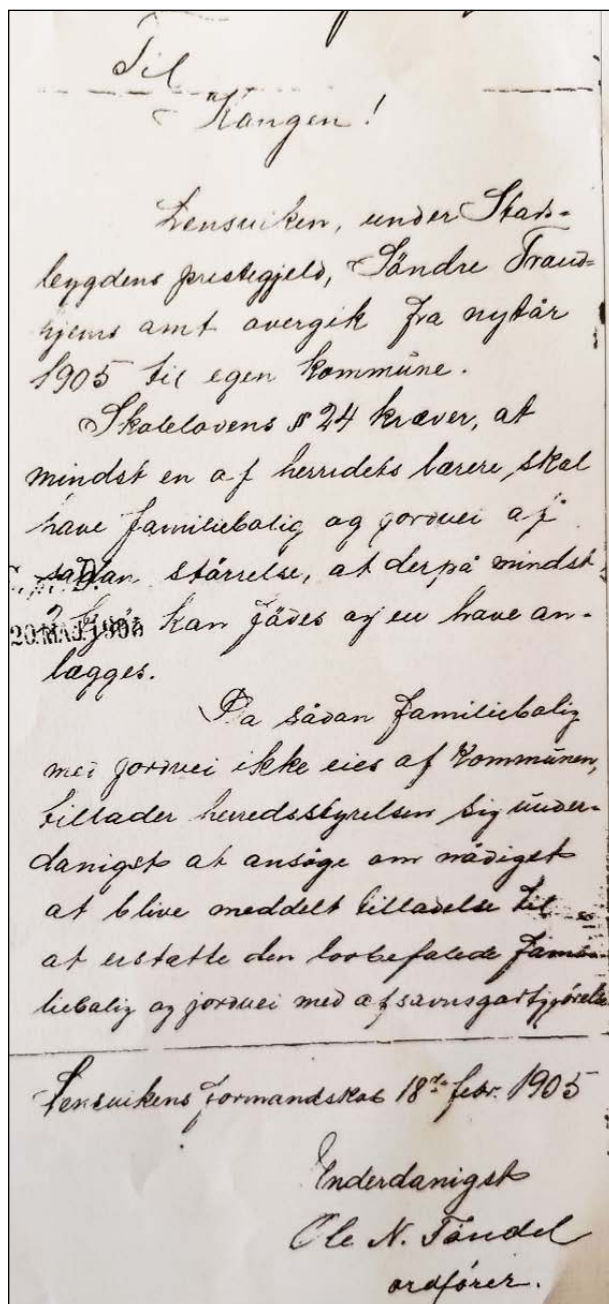 Til
Kongen!
Lensviken, under Stads-
bygdens prestegjeld, Söndre Trond-
hjems amt overgik fra nytår
1905 til egen kommune.
Skolelovens § 24 kræver, at
mindst en af herredets lærere skal
have familiebolig og jordvei af
sådan störrelse, at derpå mindst
kan födes og en have an-
20 MAJ 1905
lægges.
Da sådan familiebolig
med jordvei ikke eies af kommunen,
tillader herredsstyrelsen sig under-
danigst at ansöge om nådigst
at blive meddelt tilladelse til
at erstatte den lovbefalede fami-
liebolig og jordvei med afsavnsgodtgjörelse
Lensvikens formandskab 18de febr. 1905
Underdanigst
Ole N. Töndel
ordförer.